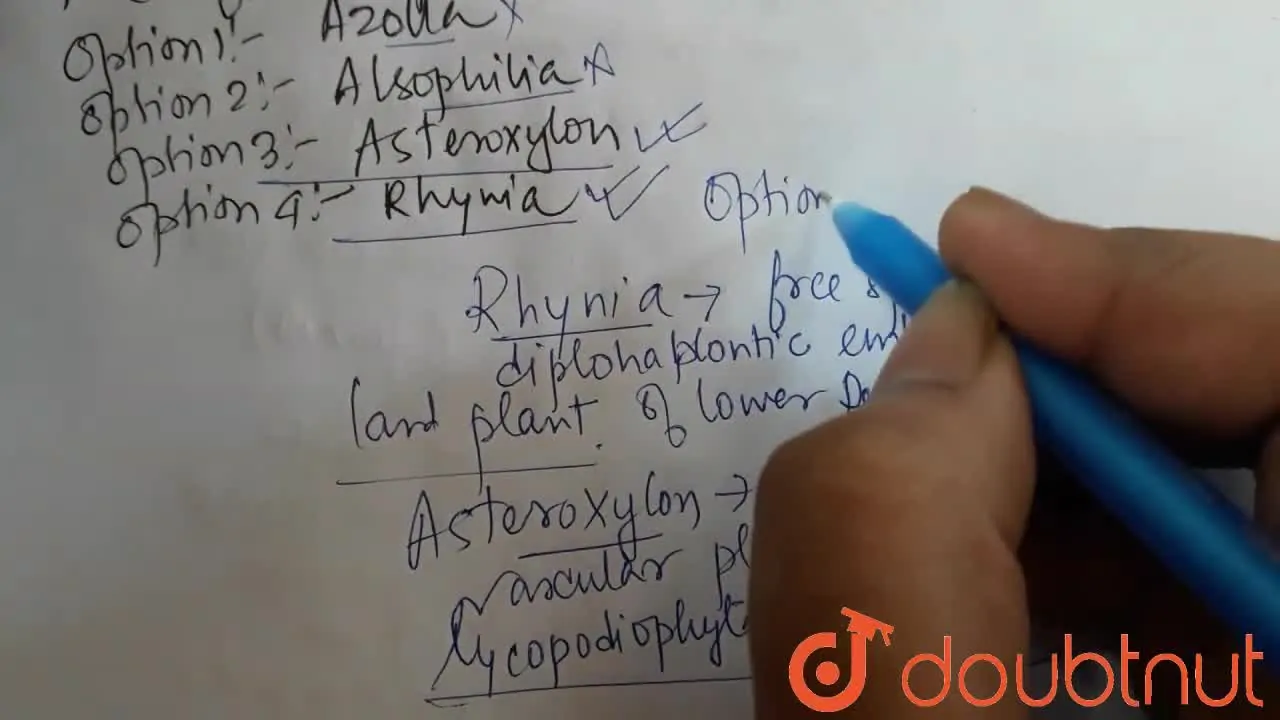 Option 1:- Azolla x
Option 2:- Alsophilia x
Option 3:- Asteroxylon ✓
Option 4:- Rhynia ✓ Option
Rhynia → free
diplohaplontic
land plant. of lower
Asteroxylon →
vascular
Lycopodiophyt
doubtnut